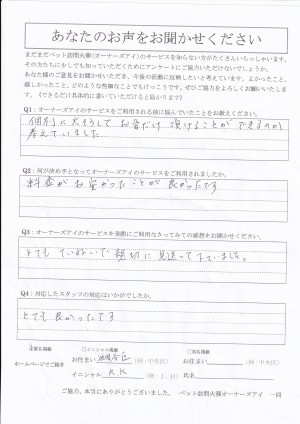 あなたのお声をお聞かせください
まだまだペット訪問火葬(オーナーズアイ)のサービスを知らない方がたくさんいらっしゃいます。
その方たちに少しでも知っていただくためにアンケートにご協力いただけないでしょうか。
あなた様のご意見をお聞かせいただき、今後の活動に反映したいと考えています。よかったこと、
嬉しかったこと、どのような些細なことでもけっこうです。ぜひご協力をよろしくお願いいたしま
す。(できるだけ具体的に書いていただけると助かります)
Q1:オーナーズアイのサービスをご利用される前に悩んでいたことをお教えください。
個別に火そうして お骨だけ 頂けることが できるのか
考えていました
Q2:何が決め手となってオーナーズアイのサービスをご利用されましたか。
料金がお安かったことが 良かったです
Q3:オーナーズアイのサービスを実際にご利用なさってみての感想をお聞かせください。
とても ていねいで 親切に 見送って下さいました。
Q4:対応したスタッフの対応はいかがでしたか。
とても良かったです
イニシャル掲載
ホームページでご紹介
お住まい
(例:中央区)
お住まい
(例:中央区)
イニシャル K K
氏名
ご協力、本当にありがとうございました。 ペット訪問火葬オーナーズアイ 一同